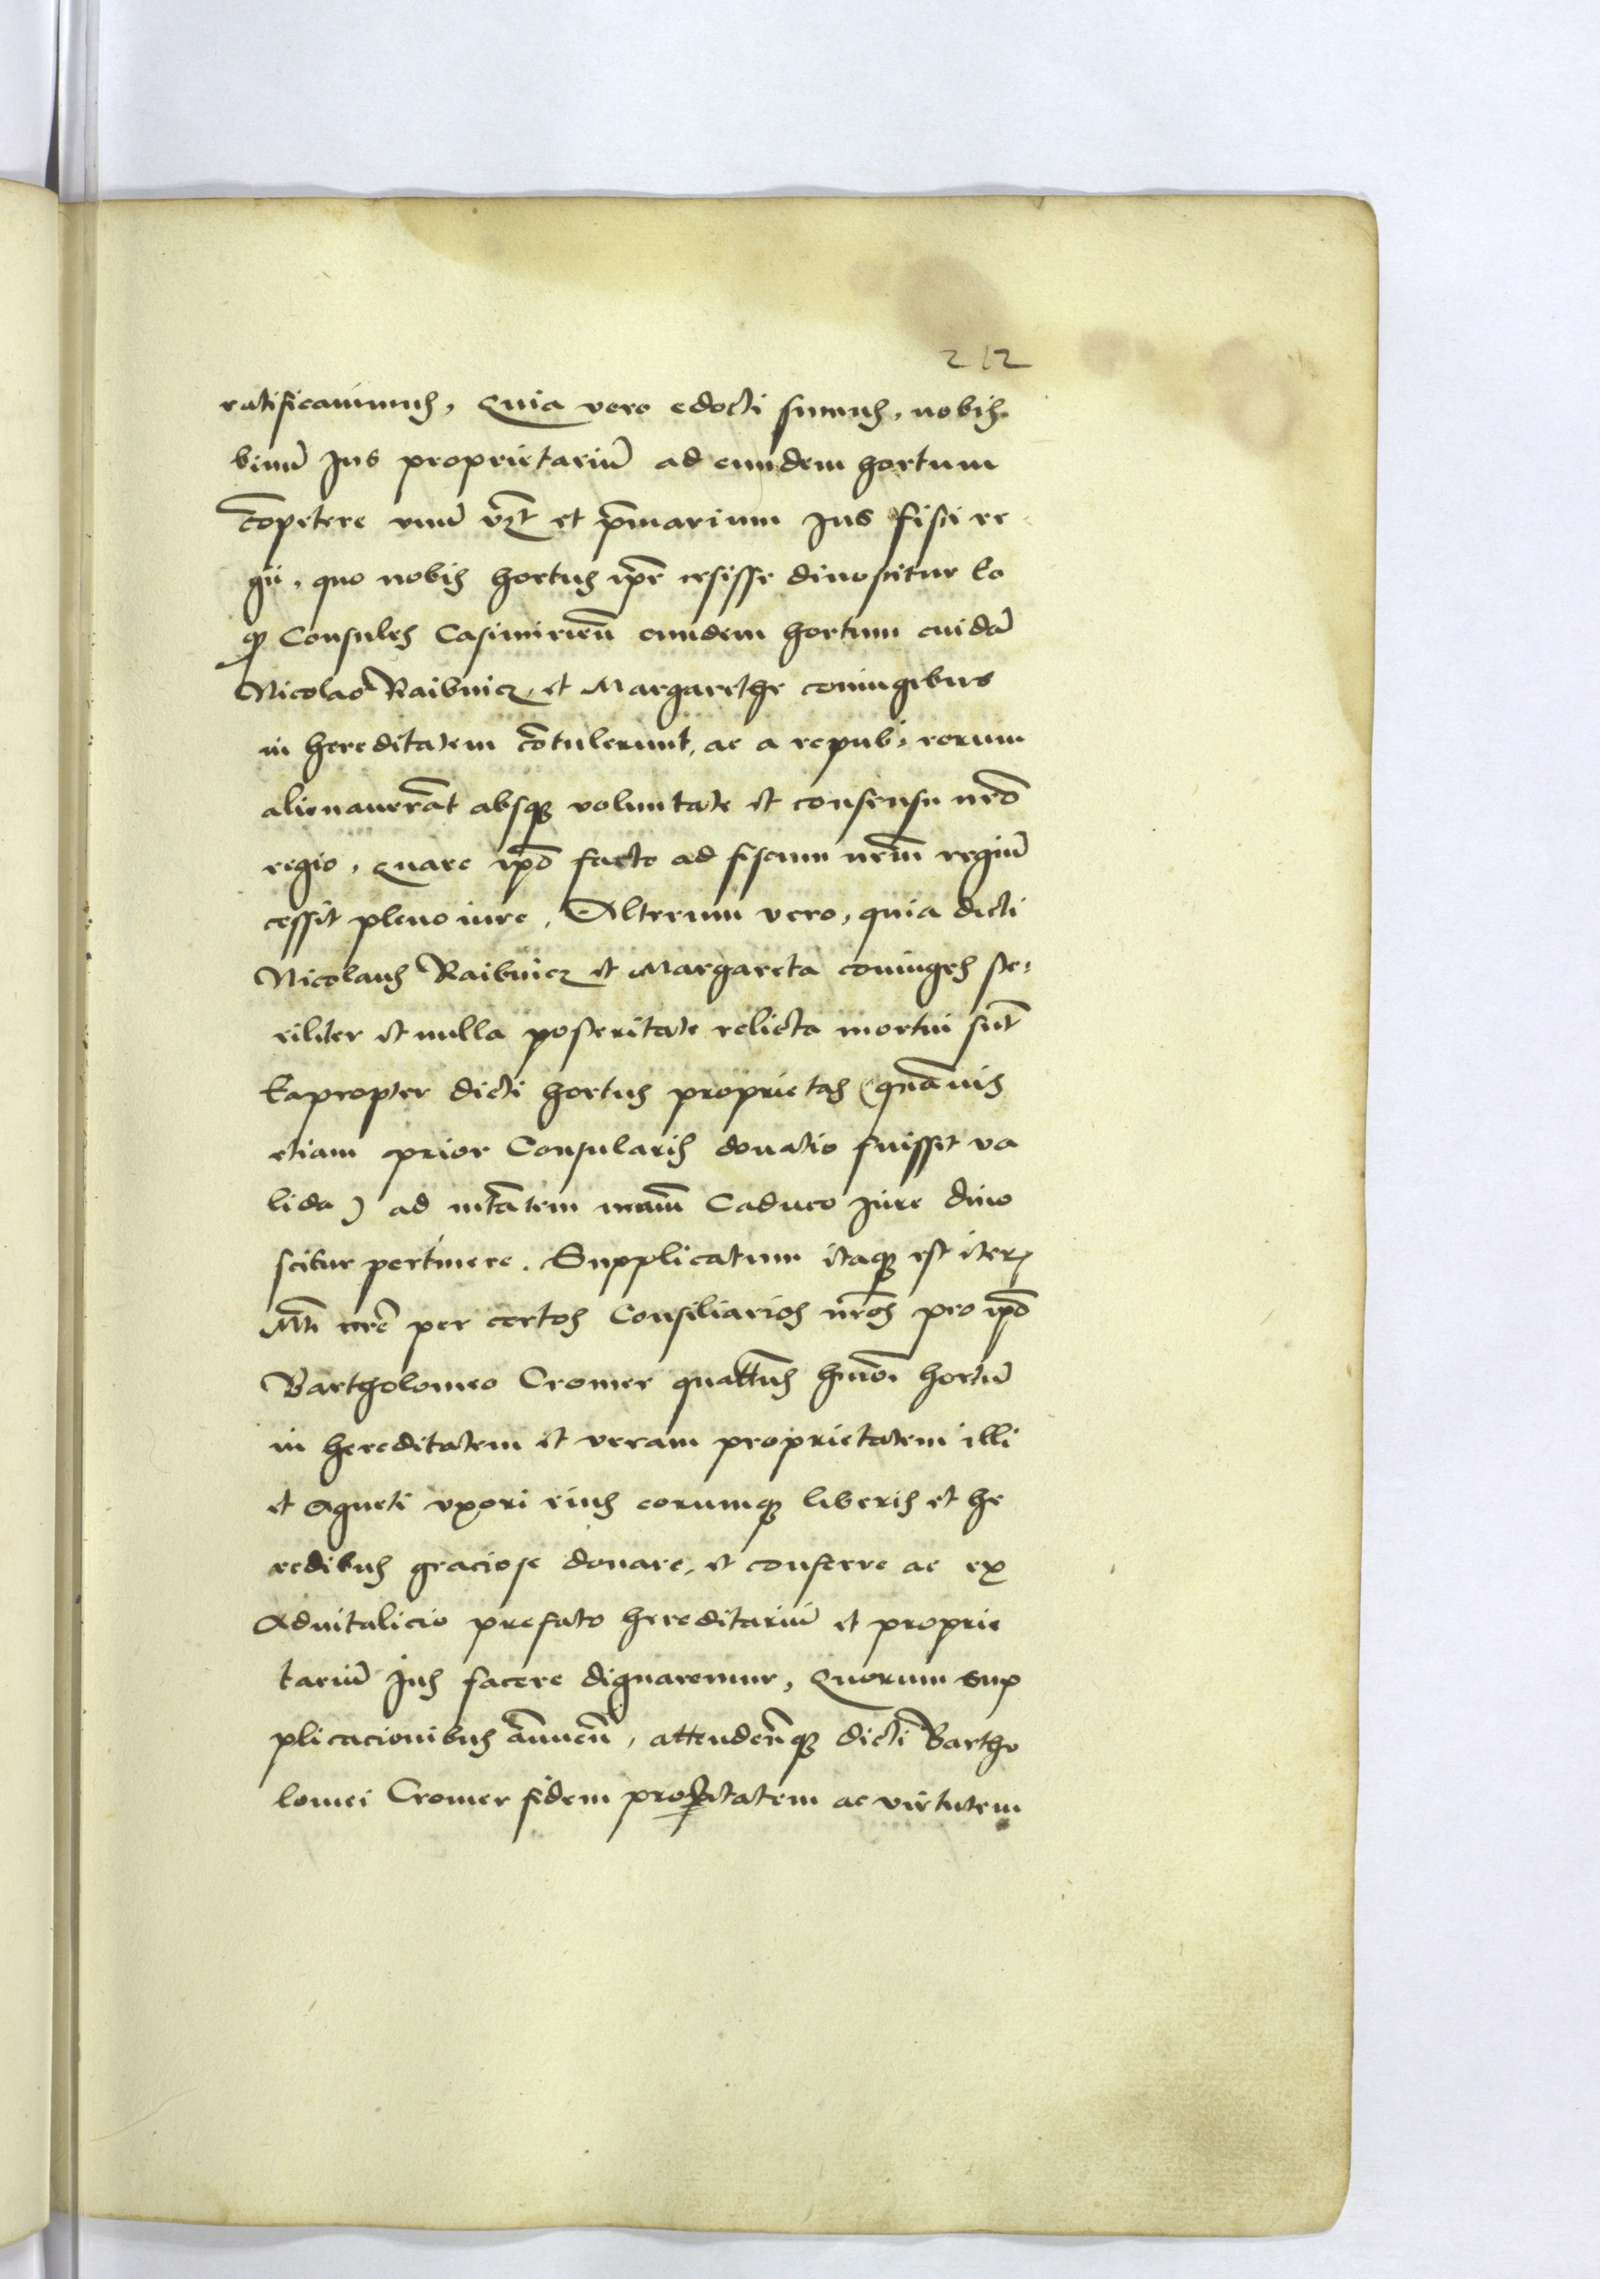 212
ratificauimus, Quia vero edocti sumus, nobis
binū Jus proprietariū ad eundem hortum
cōpetere vnū vꝫt et p̄marium Jus fisci re
gii, quo nobis hortus ip̄e cesisse dinoscitur eo
qꝫ Consules Casimirień eundem hortum cuidā
Nicolao Raibnicz et Margarethe coniugibus
in hereditatem cōtulerunt, ac a repub: eorum
alienauerāt absqꝫ voluntate et consensu nr̄o
regio, Quare ip̄o facto ad fiscum nr̄m regiū
cessit pleno iure. Alterum vero, quia dicti
Nicolaus Raibnicz et Margareta coniuges ste-
riliter et nulla posteritate relicta mortui sūt
Eapropter dicti hortus proprietas (quāuis
etiam prior Consularis donatio fuisset va
lida) ad mtātem nr̄am Caduco Jure dino
scitur pertinere. Supplicatum itaqꝫ est iterꝫ
Mti nr̄e per certos Consiliarios nr̄os pro ip̄o
Bartholomeo Cromer quatt̄us hm̄oi hortū
in hereditatem et veram proprietatem illi
et Agneti vxori eius eorumqꝫ liberis et he
redibus graciose donare, et conferre ac ex
Aduitalicio prefato hereditariū et proprie
tariū Jus facere dignaremur, Quorum sup
plicacionibus ānueń, attendeńqꝫ dicti Bartho
lomei Cromer fidem probitatem ac virtutem